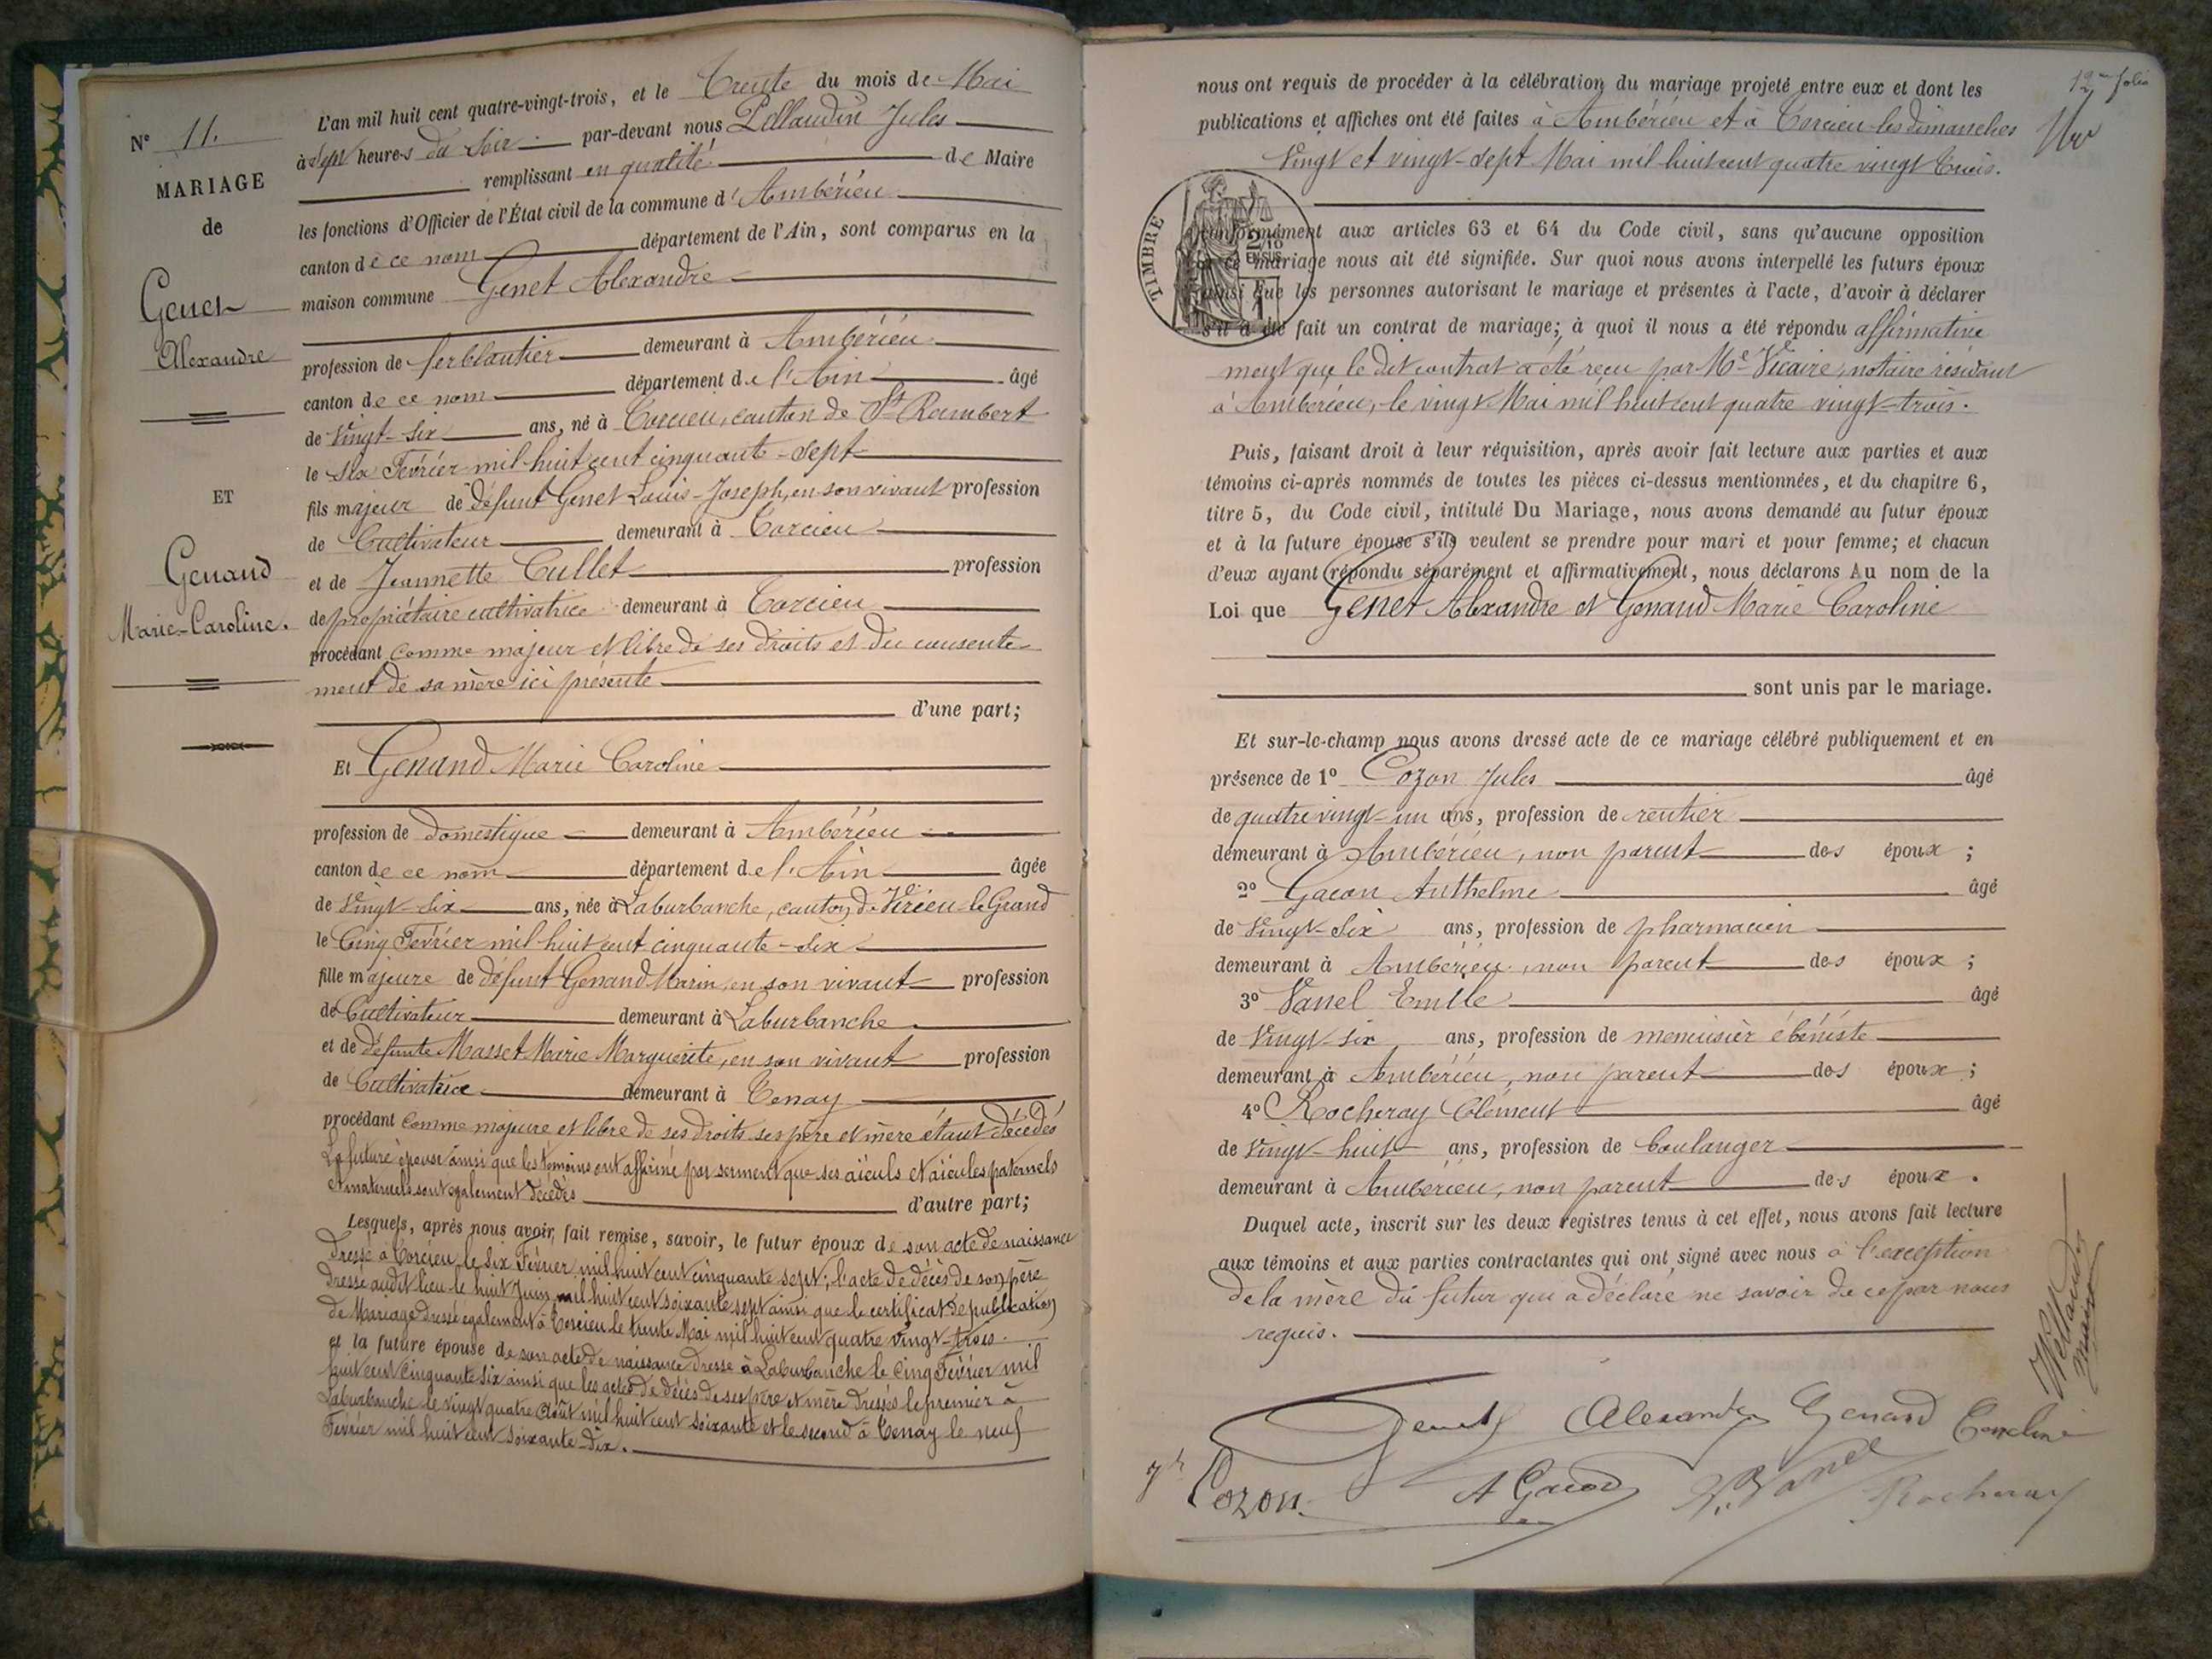 N° 11.
MARIAGE
de
Genet
Alexandre
ET
Genand
Marie-Caroline.
L'an mil huit cent quatre-vingt-trois, et le Trente du mois de Mai
à sept heures du soir par-devant nous Pellaudin Jules
remplissant en qualité de Maire
les fonctions d'Officier de l'État civil de la commune d'Ambérieu
canton de ce nom département de l'Ain, sont comparus en la
maison commune Genet Alexandre
profession de ferblantier demeurant à Ambérieu
canton de ce nom département de l'Ain âgé
de vingt-six ans, né à Torcieu, canton de St Rambert
le six Février mil huit cent cinquante-sept
fils majeur de défunt Genet Louis-Joseph, en son vivant profession
de Cultivateur demeurant à Torcieu
et de Jeannette Tullet profession
de propriétaire cultivatrice demeurant à Torcieu
procédant comme majeur et libre de ses droits et du consente-
ment de sa mère ici présente
d'une part;
Et Genand Marie Caroline
profession de domestique demeurant à Ambérieu
canton de ce nom département de l'Ain âgée
de vingt-six ans, née à Laburbanche, canton de Virieu-le-Grand
le Cinq Février mil huit cent cinquante-six
fille majeure de défunt Genand Marin, en son vivant profession
de Cultivateur demeurant à Laburbanche
et de défunte Masset Marie Marguerite, en son vivant profession
de Cultivatrice demeurant à Tenay
procédant comme majeure et libre de ses droits ses père et mère étant décédés
La future épouse ainsi que les témoins ont affirmé par serment que ses aïeuls et aïeules paternels
et maternels sont également décédés d'autre part;
Lesquels, après nous avoir fait remise, savoir, le futur époux de son acte de naissance
dressé à Torcieu le six Février mil huit cent cinquante sept; l'acte de décès de son père
dressé audit lieu le huit Juin mil huit cent soixante sept ainsi que le certificat de publication
de Mariage dressé également à Torcieu le trente Mai mil huit cent quatre vingt-trois.
et la future épouse de son acte de naissance dressé à Laburbanche le cinq Février mil
huit cent cinquante six ainsi que les actes de décès de ses père et mère dressés le premier à
Laburbanche le vingt quatre Août mil huit cent soixante et le second à Tenay le neuf
Février mil huit cent soixante dix.
12me folio
nous ont requis de procéder à la célébration du mariage projeté entre eux et dont les
publications et affiches ont été faites à Ambérieu et à Torcieu les dimanches
vingt et vingt-sept Mai mil huit cent quatre vingt trois.
TIMBRE
conformément aux articles 63 et 64 du Code civil, sans qu'aucune opposition
à ce mariage nous ait été signifiée. Sur quoi nous avons interpellé les futurs époux
ainsi que les personnes autorisant le mariage et présentes à l'acte, d'avoir à déclarer
s'il a été fait un contrat de mariage; à quoi il nous a été répondu affirmative
ment que le dit contrat a été reçu par Me Vicaire, notaire résidant
à Ambérieu, le vingt Mai mil huit cent quatre vingt-trois.
Puis, faisant droit à leur réquisition, après avoir fait lecture aux parties et aux
témoins ci-après nommés de toutes les pièces ci-dessus mentionnées, et du chapitre 6,
titre 5, du Code civil, intitulé Du Mariage, nous avons demandé au futur époux
et à la future épouse s'ils veulent se prendre pour mari et pour femme; et chacun
d'eux ayant répondu séparément et affirmativement, nous déclarons Au nom de la
Loi que Genet Alexandre et Genand Marie Caroline
sont unis par le mariage.
Et sur-le-champ nous avons dressé acte de ce mariage célébré publiquement et en
présence de 1° Cozon Jules âgé
de quatre vingt-un ans, profession de rentier
demeurant à Ambérieu, non parent des époux ;
2° Gacon Anthelme âgé
de vingt-six ans, profession de pharmacien
demeurant à Ambérieu, non parent des époux ;
3° Vanel Emile âgé
de vingt-six ans, profession de menuisier ébéniste
demeurant à Ambérieu, non parent des époux ;
4° Rocheray Clément âgé
de vingt-huit ans, profession de boulanger
demeurant à Ambérieu, non parent des époux.
Duquel acte, inscrit sur les deux registres tenus à cet effet, nous avons fait lecture
aux témoins et aux parties contractantes qui ont signé avec nous à l'exception
de la mère du futur qui a déclaré ne savoir de ce par nous
requis.
Genet Alexandre Genand Caroline
Cozon A Gacon E. Vanel Rocheray
Pellaudin
maire